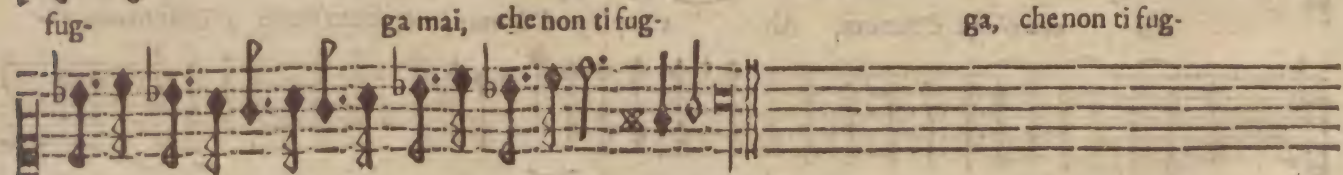 fug- ga mai, che non ti fug- ga, che non ti fug-